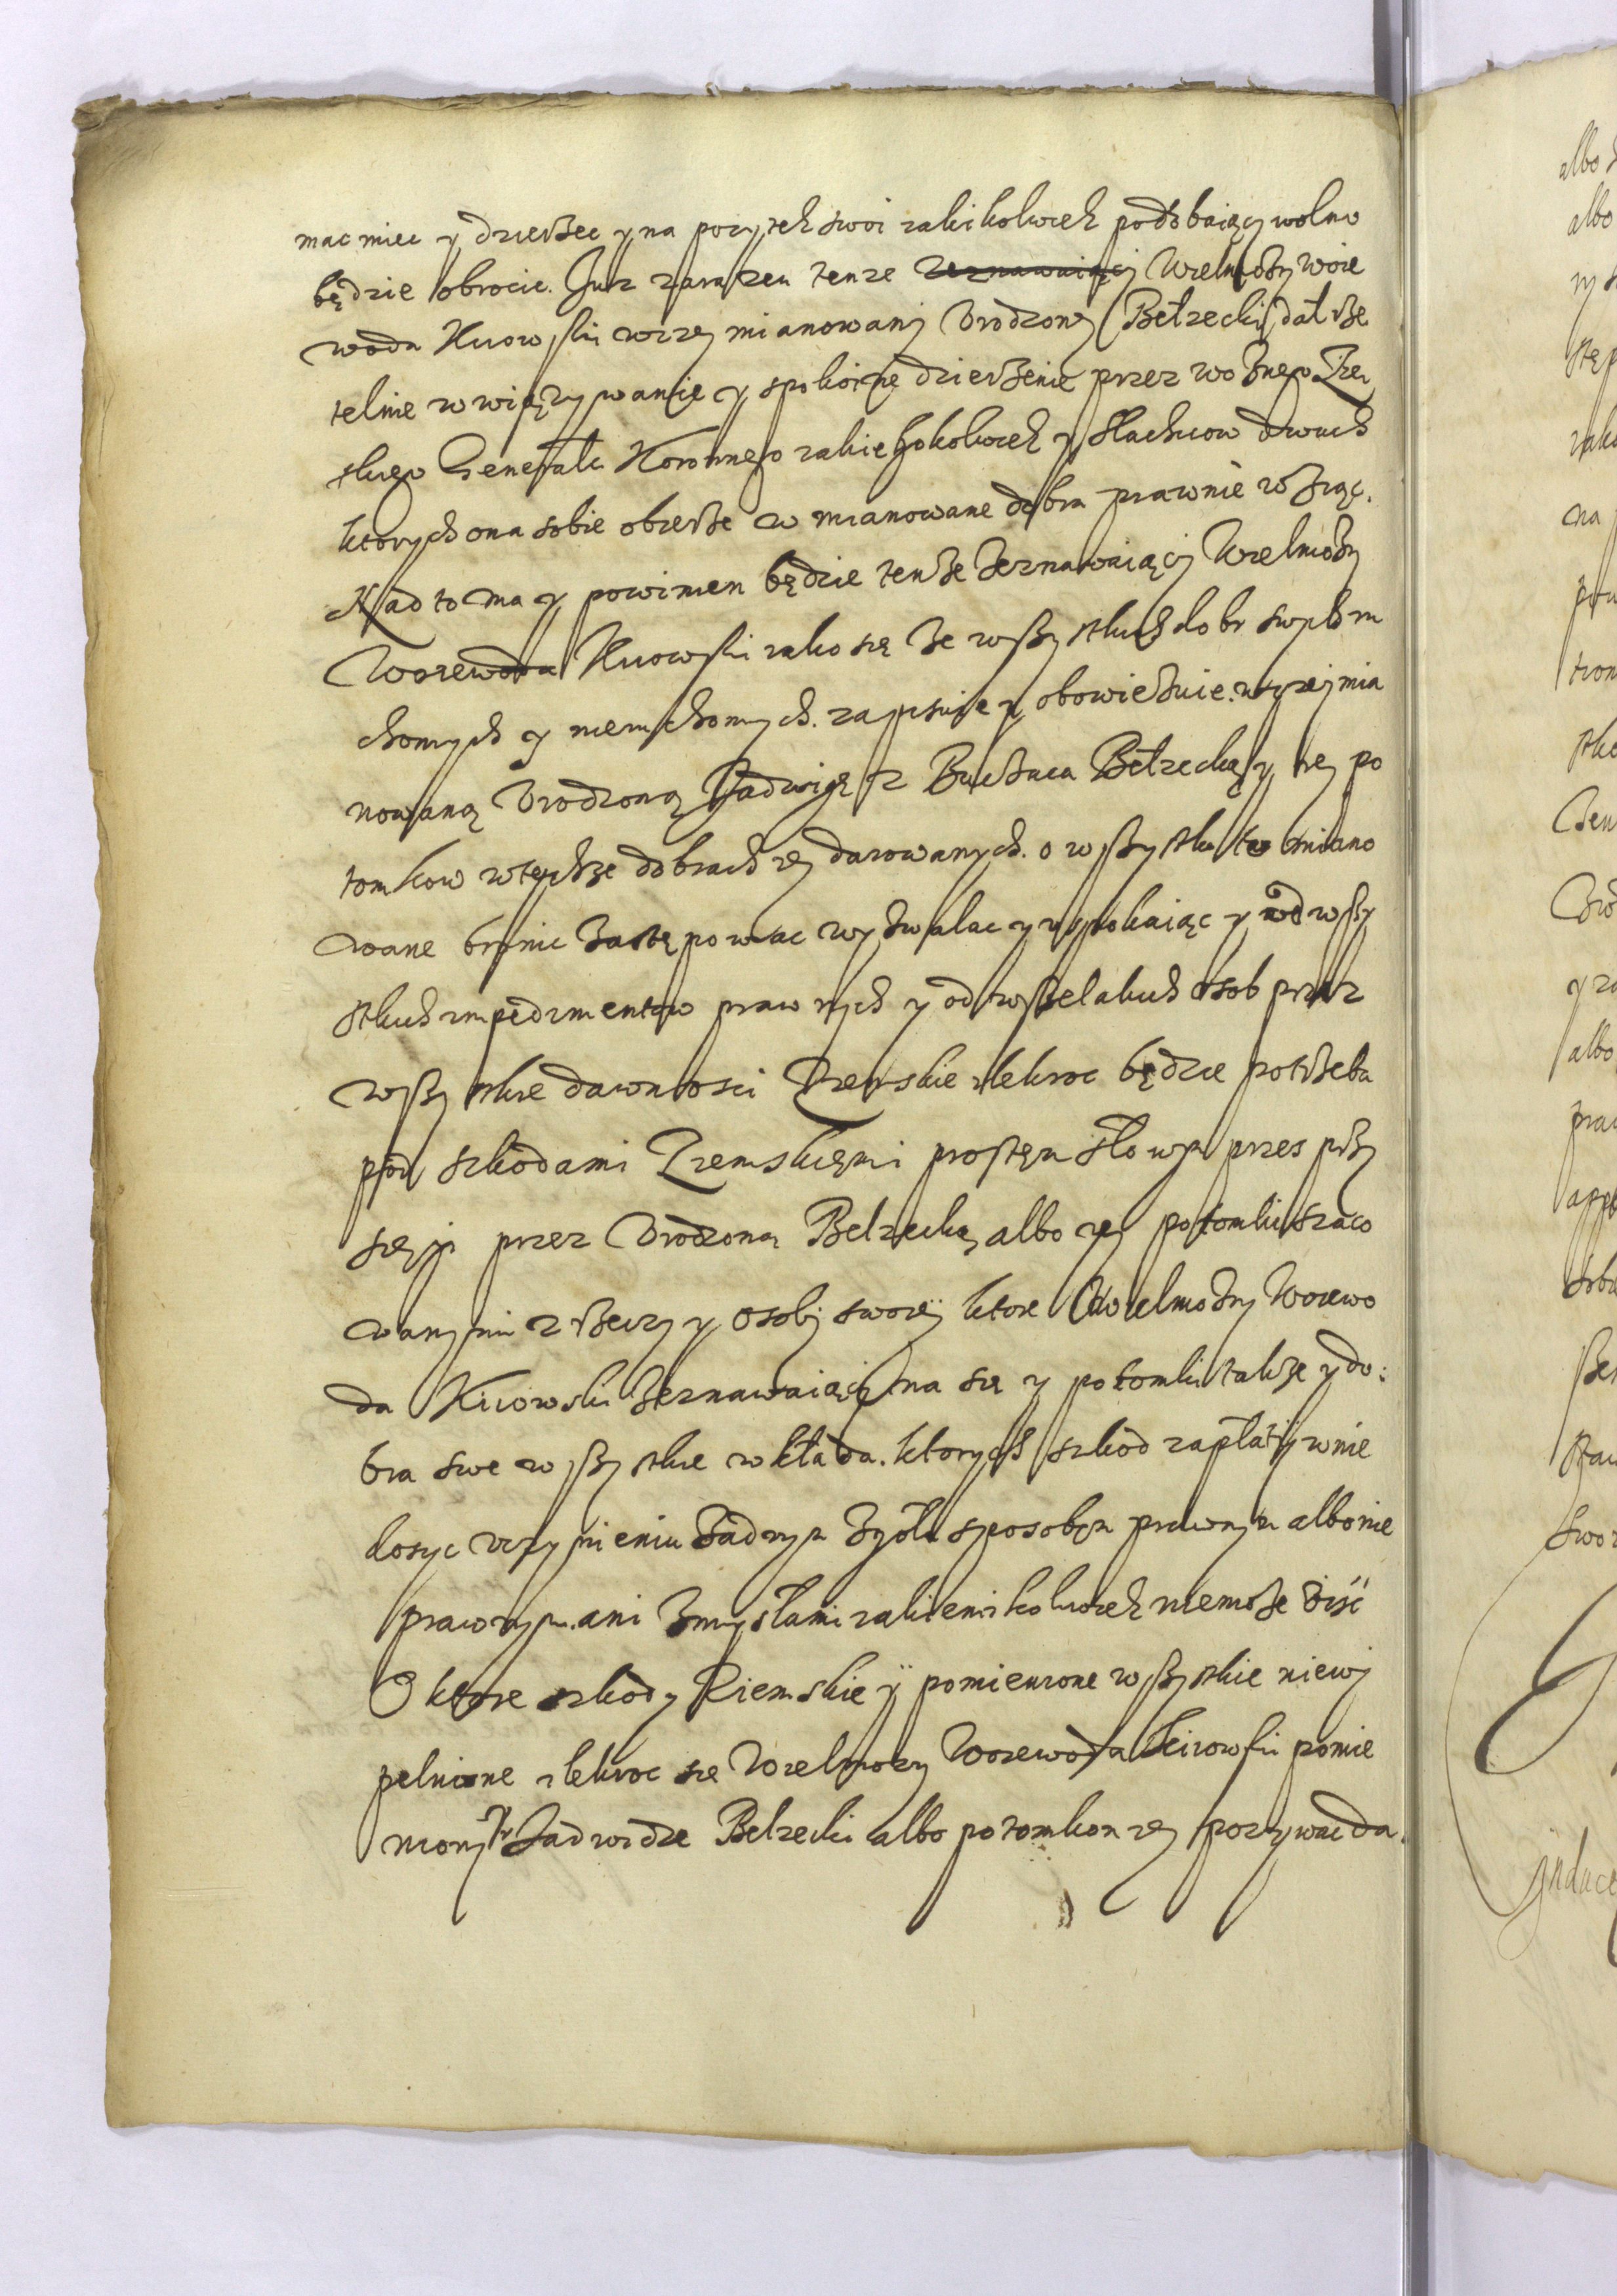 mac miec y dzierżec y na pozytek swoi iakikolwiek podobaiący wolno
będzie obrocic. Iuz zarazen tenze zeznawaiąci Wielmożny woie
woda Kiiowski wzzey mianowanj Vrodzonej Bełzeckij dał rze
telnie wwiązywanie y spokoine dzierżenie przez woznego Zięm
skiego Generała Koronnego iakiegokolwiek y slachcicow dwuch
ktorych ona sobie obierże w mianowane dobra prawnie wziąc.
Nad to ma y powinien będzie tenże zeznawaiącj Wielmożnj
Woiewoda Kiiowski iako się że wszystkich dobr swych ru
chomych y nieruchomych. zapisuie y obowiezuie. wyzej mia
nowaną Vrodzoną Jadwigę z Buczacza Bełzecką y iej po
tomkow wtychże dobrach iej darowanych. o wszystko to mniano
wane bronic zastępowac wyzwalac y vspokaiąc y od wszy
stkich impedimentow prawnych y od wszelakich osob przez
wszystkie dawnosci Ziemskie ilekroc będzie potrzeba
pod szkodami Ziemskięmi prostęm słowem przes przy
sięgi przez Vrodzoną Belzecką albo iej potomki szaco
wanymi z rzeczy y osobj swoieÿ ktore Wielmożny Woiewo
da Kiiowski zeznawaiącij na się y potomki także y do:
bra swe wszystkie wkłada. ktorych szkod zapłatij w nie
dosyc vczynieniu żadnym zgoła sposobęm prawnym albo nie
prawnym. ani zmysłami iakiemikolwiek niemoże viśc
O ktore szkody Ziemskie ÿ pomienione wszystkie niewy
pelnione ilekroc się Wielmozny Woiewoda Kiiowski pomie
nionej Jadwidze Belzecki albo potomkon iej pozywac da.